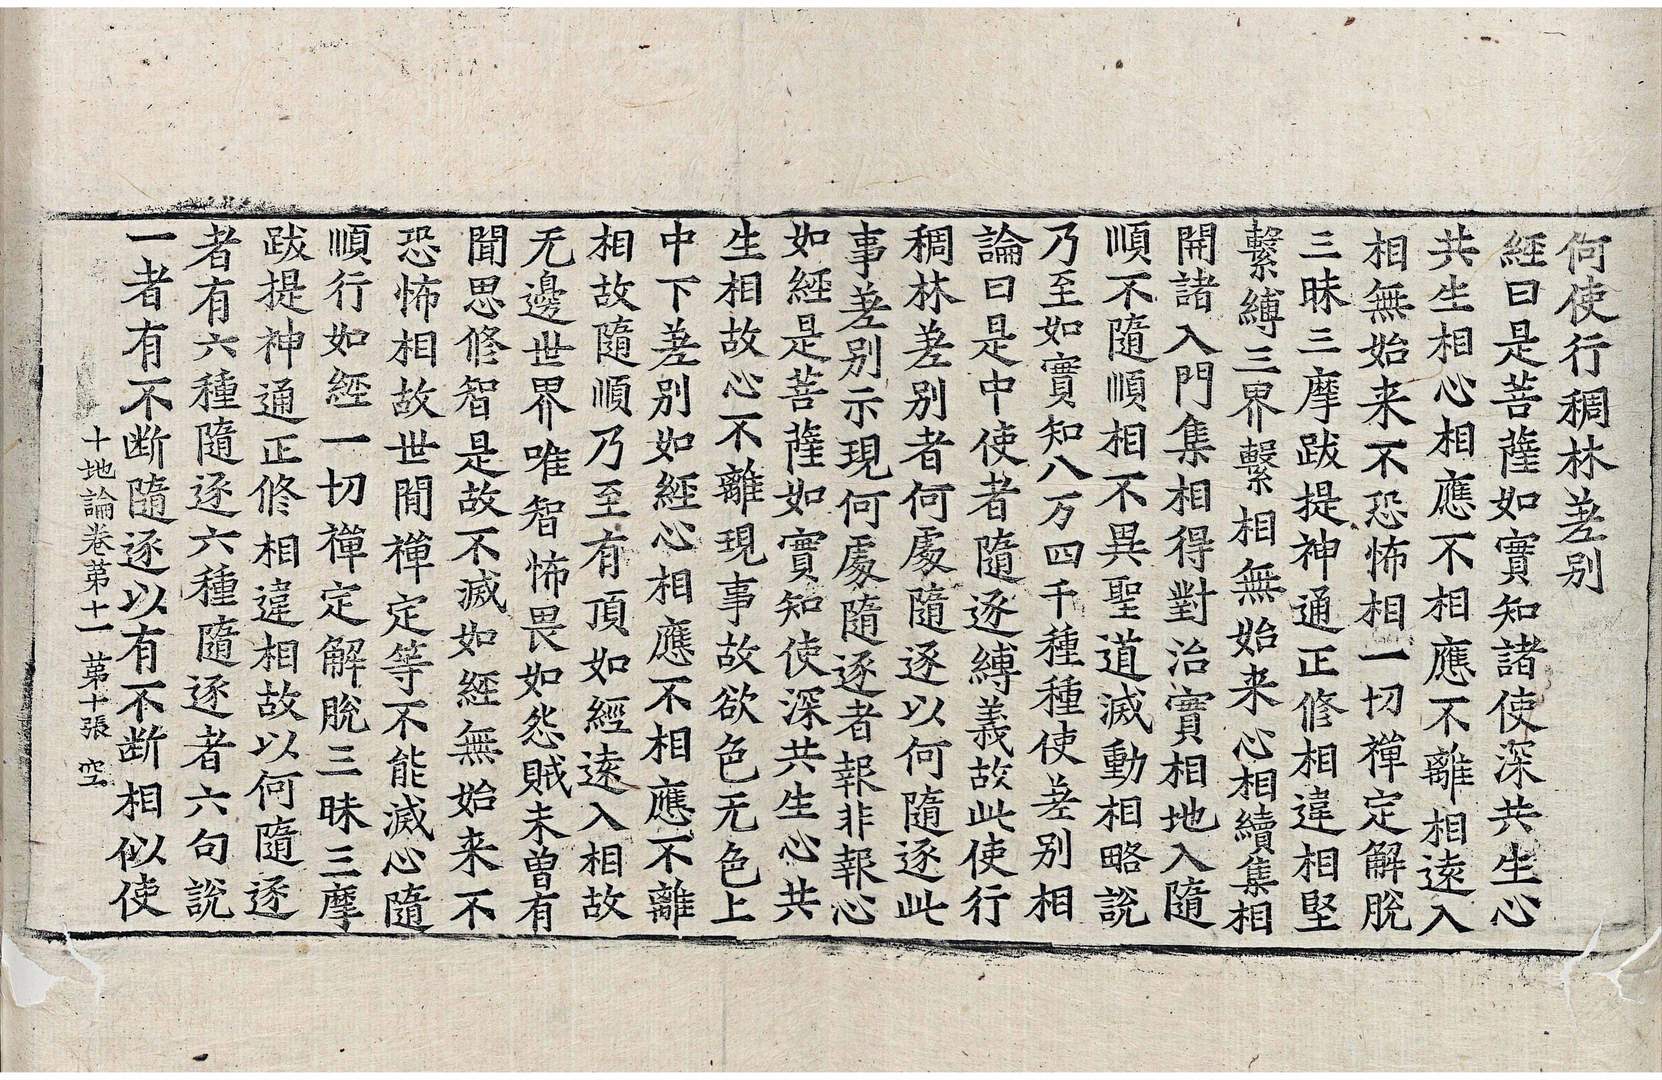 何使行稠林差別
經曰是菩薩如實知諸使深共生心
共生相心相應不相應不離相遠入
相無始来不恐怖相一切禪定解脫
三昧三摩跋提神通正修相違相堅
繫縛三界繫相無始来心相續集相
開諸入門集相得對治實相地入隨
順不隨順相不異聖道滅動相略說
乃至如實知八万四千種種使差別相
論曰是中使者隨逐縛義故此使行
稠林差別者何處隨逐以何隨逐此
事差別示現何處隨逐者報非報心
如經是菩薩如實知使深共生心共
生相故心不離現事故欲色无色上
中下差別如經心相應不相應不離
相故隨順乃至有頂如經遠入相故
无邊世界唯智怖畏如怨賊未曽有
聞思修智是故不滅如經無始来不
恐怖相故世間禪定等不能滅心隨
順行如經一切禪定解脫三昧三摩
跋提神通正修相違相故以何隨逐
者有六種隨逐六種隨逐者六句說
一者有不断隨逐以有不断相似使
十地論卷苐十一　苐十張　空